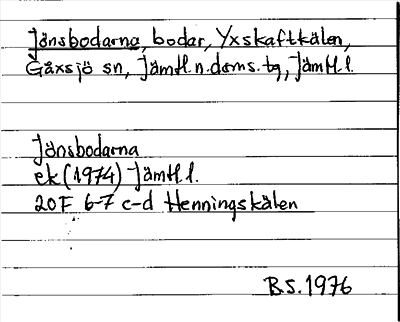 Jönsbodarna, bodar, Yxskaftkälen,
Gåxsjö sn, Jämtl.n.doms.tg, Jämtl.l.
Jönsbodarna
ek (1974) Jämtl.l.
20F 6-7 c-d Henningskälen
B.S. 1976